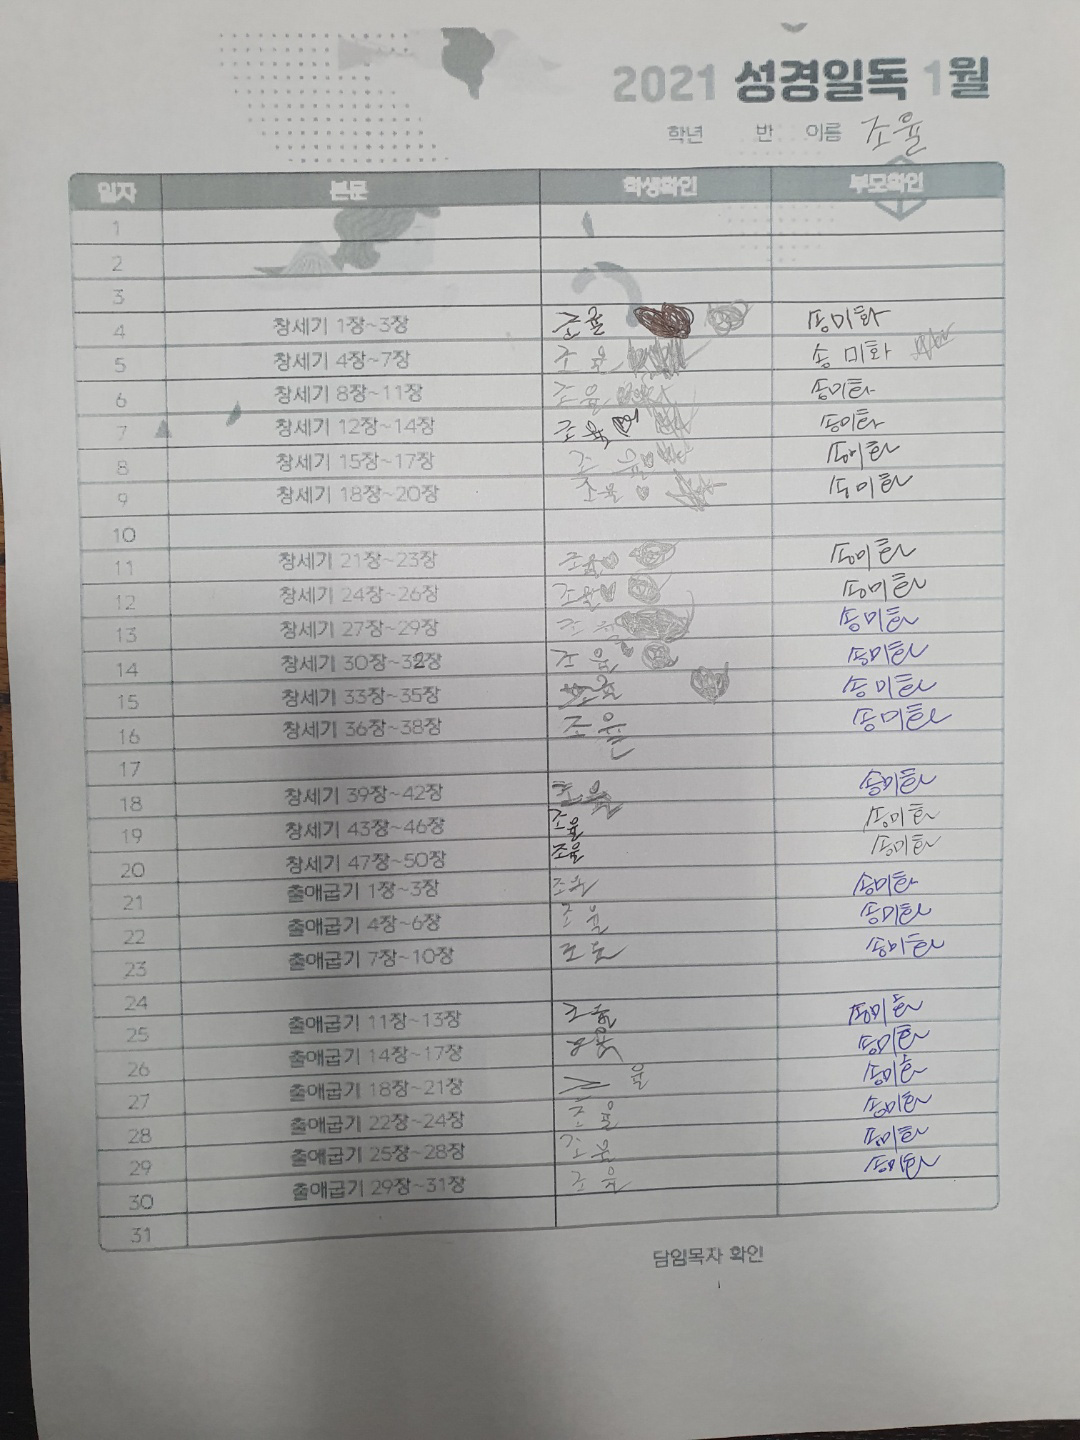 2021 성경일독 1월
학년 반 이름 조율
일자 본문 학생확인 부모확인
1
2
3
4 창세기 1장~3장 조율 송미화
5 창세기 4장~7장 조율 송미화
6 창세기 8장~11장 조율 송미화
7 창세기 12장~14장 조율 송미화
8 창세기 15장~17장 조율 송미화
9 창세기 18장~20장 조율 송미화
10
11 창세기 21장~23장 조율 송미화
12 창세기 24장~26장 조율 송미화
13 창세기 27장~29장 조율 송미화
14 창세기 30장~32장 조율 송미화
15 창세기 33장~35장 조율 송미화
16 창세기 36장~38장 조율 송미화
17
18 창세기 39장~42장 조율 송미화
19 창세기 43장~46장 조율 송미화
20 창세기 47장~50장 조율 송미화
21 출애굽기 1장~3장 조율 송미화
22 출애굽기 4장~6장 조율 송미화
23 출애굽기 7장~10장 조율 송미화
24
25 출애굽기 11장~13장 조율 송미화
26 출애굽기 14장~17장 조율 송미화
27 출애굽기 18장~21장 율 송미화
28 출애굽기 22장~24장 조율 송미화
29 출애굽기 25장~28장 조율 송미화
30 출애굽기 29장~31장 조율 송미화
31
담임목자 확인